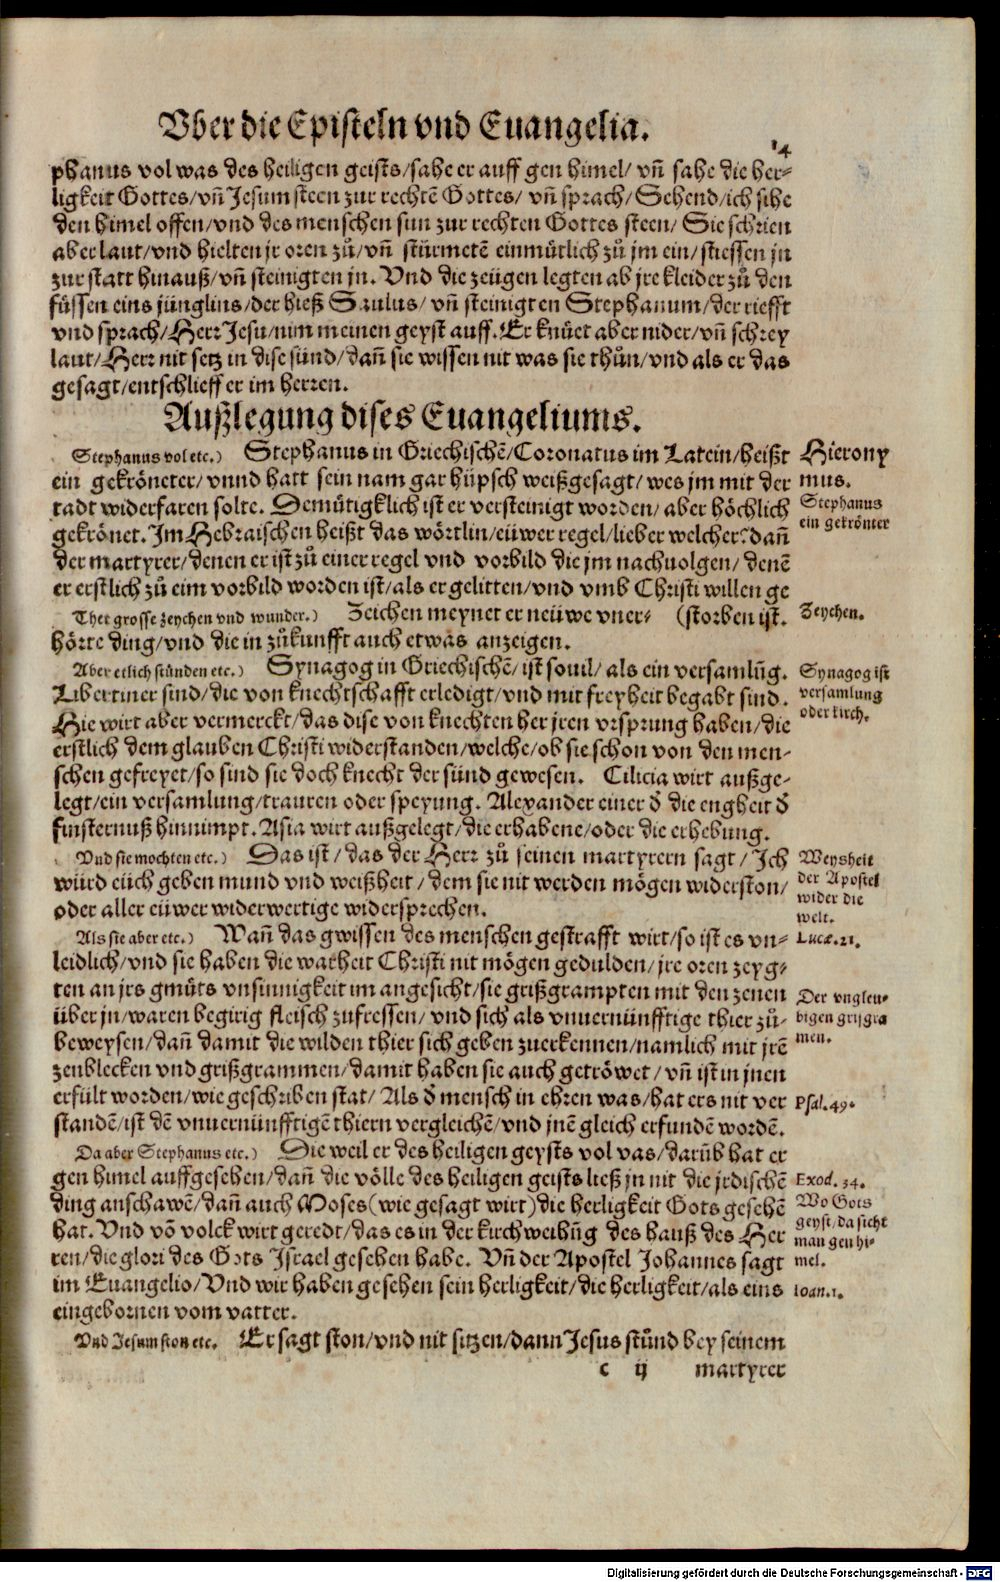 Vber die Episteln vnd Euangelia.
14
phanus vol was des heiligen geists/sahe er auff gen himel/ vñ sahe die her-
ligkeit Gottes/vñ Jesum steen zur rechtẽ Gottes/ vñ sprach/Sehend/ich sihe
den himel offen/vnd des menschen sun zur rechten Gottes steen/ Sie schrien
aber laut/vnd hielten jr oren zů/vñ stürmetẽ einmütlich zů jm ein/stiessen jn
zur statt hinauß/vñ steinigten jn. Vnd die zeügen legten ab jre kleider zů den
füssen eins jünglins/der hieß Saulus/ vñ steinigten Stephanum/der riefft
vnd sprach/Herr Jesu/nim meinen geyst auff. Er knüet aber nider/vñ schrey
laut/Herr nit setz in dise sünd/dañ sie wissen nit was sie thůn/vnd als er das
gesagt/entschlieff er im herren.
Außlegung dises Euangeliums.
Stephanus vol etc.) Stephanus in Griechischẽ/Coronatus im Latein/heißt
ein gekröneter/vnnd hatt sein nam gar hüpsch weißgesagt/wes jm mit der
tadt widerfaren solte. Demütigklich ist er versteinigt worden/aber höchlich
gekrönet. Im Hebraischen heißt das wörtlin/eüwer regel/lieber welcher? dañ
der martyrer/denen er ist zů einer regel vnd vorbild die jm nachuolgen/denẽ
er erstlich zů eim vorbild worden ist/als er gelitten/vnd vmb Christi willen ge
Thet grosse zeychen vnd wunder.) Zeichen meynet er neüwe vner- (storben ist.
hörte ding/vnd die in zůkunfft auch etwas anzeigen.
Aber etlich stůnden etc.) Synagog in Griechischẽ/ist souil/als ein versamlũg.
Libertiner sind/die von knechtschafft erledigt/vnd mit freyheit begabt sind.
Hie wirt aber vermerckt/das dise von knechten her jren vrsprung haben/die
erstlich dem glauben Christi widerstanden/welche/ob sie schon von den men-
schen gefreyet/so sind sie doch knecht der sünd gewesen. Cilicia wirt außge-
legt/ein versamlung/trauren oder speyung. Alexander einer d̃ die engheit d̃
finsternuß hinnimpt. Asia wirt außgelegt/die erhabene/oder die erhebung.
Vnd sie mochten etc.) Das ist/das der Herr zů seinen martyrern sagt/Ich
würd eüch geben mund vnd weißheit/dem sie nit werden mögen widerston/
oder aller eüwer widerwertige widersprechen.
Als sie aber etc.) Wañ das gwissen des menschen gestrafft wirt/so ist es vn-
leidlich/vnd sie haben die warheit Christi nit mögen gedulden/jre oren zeyg-
ten an jrs gmüts vnsinnigkeit im angesicht/sie grißgrampten mit den zenen
über jn/waren begirig fleisch zufressen/vnd sich als vnuernünfftige thier zů-
beweysen/dañ damit die wilden thier sich geben zuerkennen/namlich mit jrẽ
zenblecken vnd grißgrammen/damit haben sie auch getröwet/vñ ist in jnen
erfült worden/wie geschriben stat/Als d̃ mensch in ehren was/hat ers nit ver
standẽ/ist dẽ vnuernünfftigẽ thiern vergleichẽ/vnd jnẽ gleich erfundẽ wordẽ.
Da aber Stephanus etc.) Die weil er des heiligen geysts vol vas/darũb hat er
gen himel auffgesehen/dañ die völle des heiligen geists ließ jn nit die jrdischẽ
ding anschawẽ/dañ auch Moses (wie gesagt wirt) die herligkeit Gots gesehẽ
hat. Vnd võ volck wirt geredt/das es in der kirchweihũg des hauß des Her
ren/die glori des Gots Israel gesehen habe. Vñ der Apostel Johannes sagt
im Euangelio/Vnd wir haben gesehen sein herligkeit/die herligkeit/als eins
eingebornen vom vatter.
Vnd Jesum ston etc. Er sagt ston/vnd nit sitzen/dann Jesus stůnd bey seinem
c ij martyrer
Hierony
mus.
Stephanus
ein gekrönter
Zeychen.
Synagog ist
versamlung
oder kirch.
Weysheit
der Apostel
wider die
welt.
Lucæ. 21.
Der vngleu-
bigen grißgra
men.
Psal. 49.
Exod. 34.
Wo Gots
geyst, da sicht
man gen hi-
mel.
Ioan. 1.
Digitalisierung gefördert durch die Deutsche Forschungsgemeinschaft - DFG